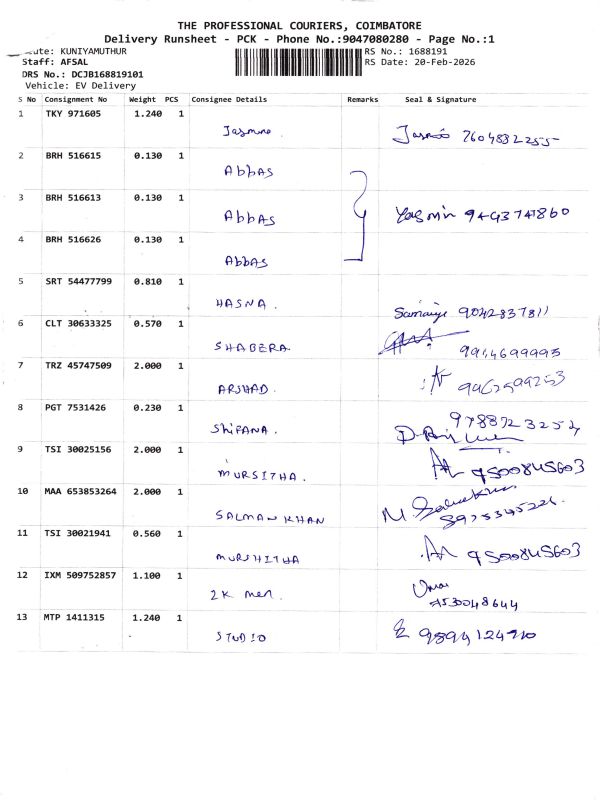 THE PROFESSIONAL COURIERS, COIMBATORE
Delivery Runsheet - PCK - Phone No.:9047080280 - Page No.:1
KUNIYAMUTHUR RS No.: 1688191
Staff: AFSAL RS Date: 20-Feb-2026
DRS No.: DCJB168819101
Vehicle: EV Delivery
S No Consignment No Weight PCS Consignee Details Remarks Seal & Signature
1 TKY 971605 1.240 1 Jasmine. 7604832255
2 BRH 516615 0.130 1 Abbas
3 BRH 516613 0.130 1 Abbas Yasmin 9443741860
4 BRH 516626 0.130 1 Abbas
5 SRT 54477799 0.810 1 HASNA. 9042837811
6 CLT 30633325 0.570 1 SHABERA 9914699995
7 TRZ 45747509 2.000 1 ARSHAD.
8 PGT 7531426 0.230 1 Shifana.
9 TSI 30025156 2.000 1 MURSITHA. 9500845603
10 MAA 653853264 2.000 1 SALMAN KHAN
11 TSI 30021941 0.560 1 MURSHITHA 9500845603
12 IXM 509752857 1.100 1 2K men.
13 MTP 1411315 1.240 1 STUDIO